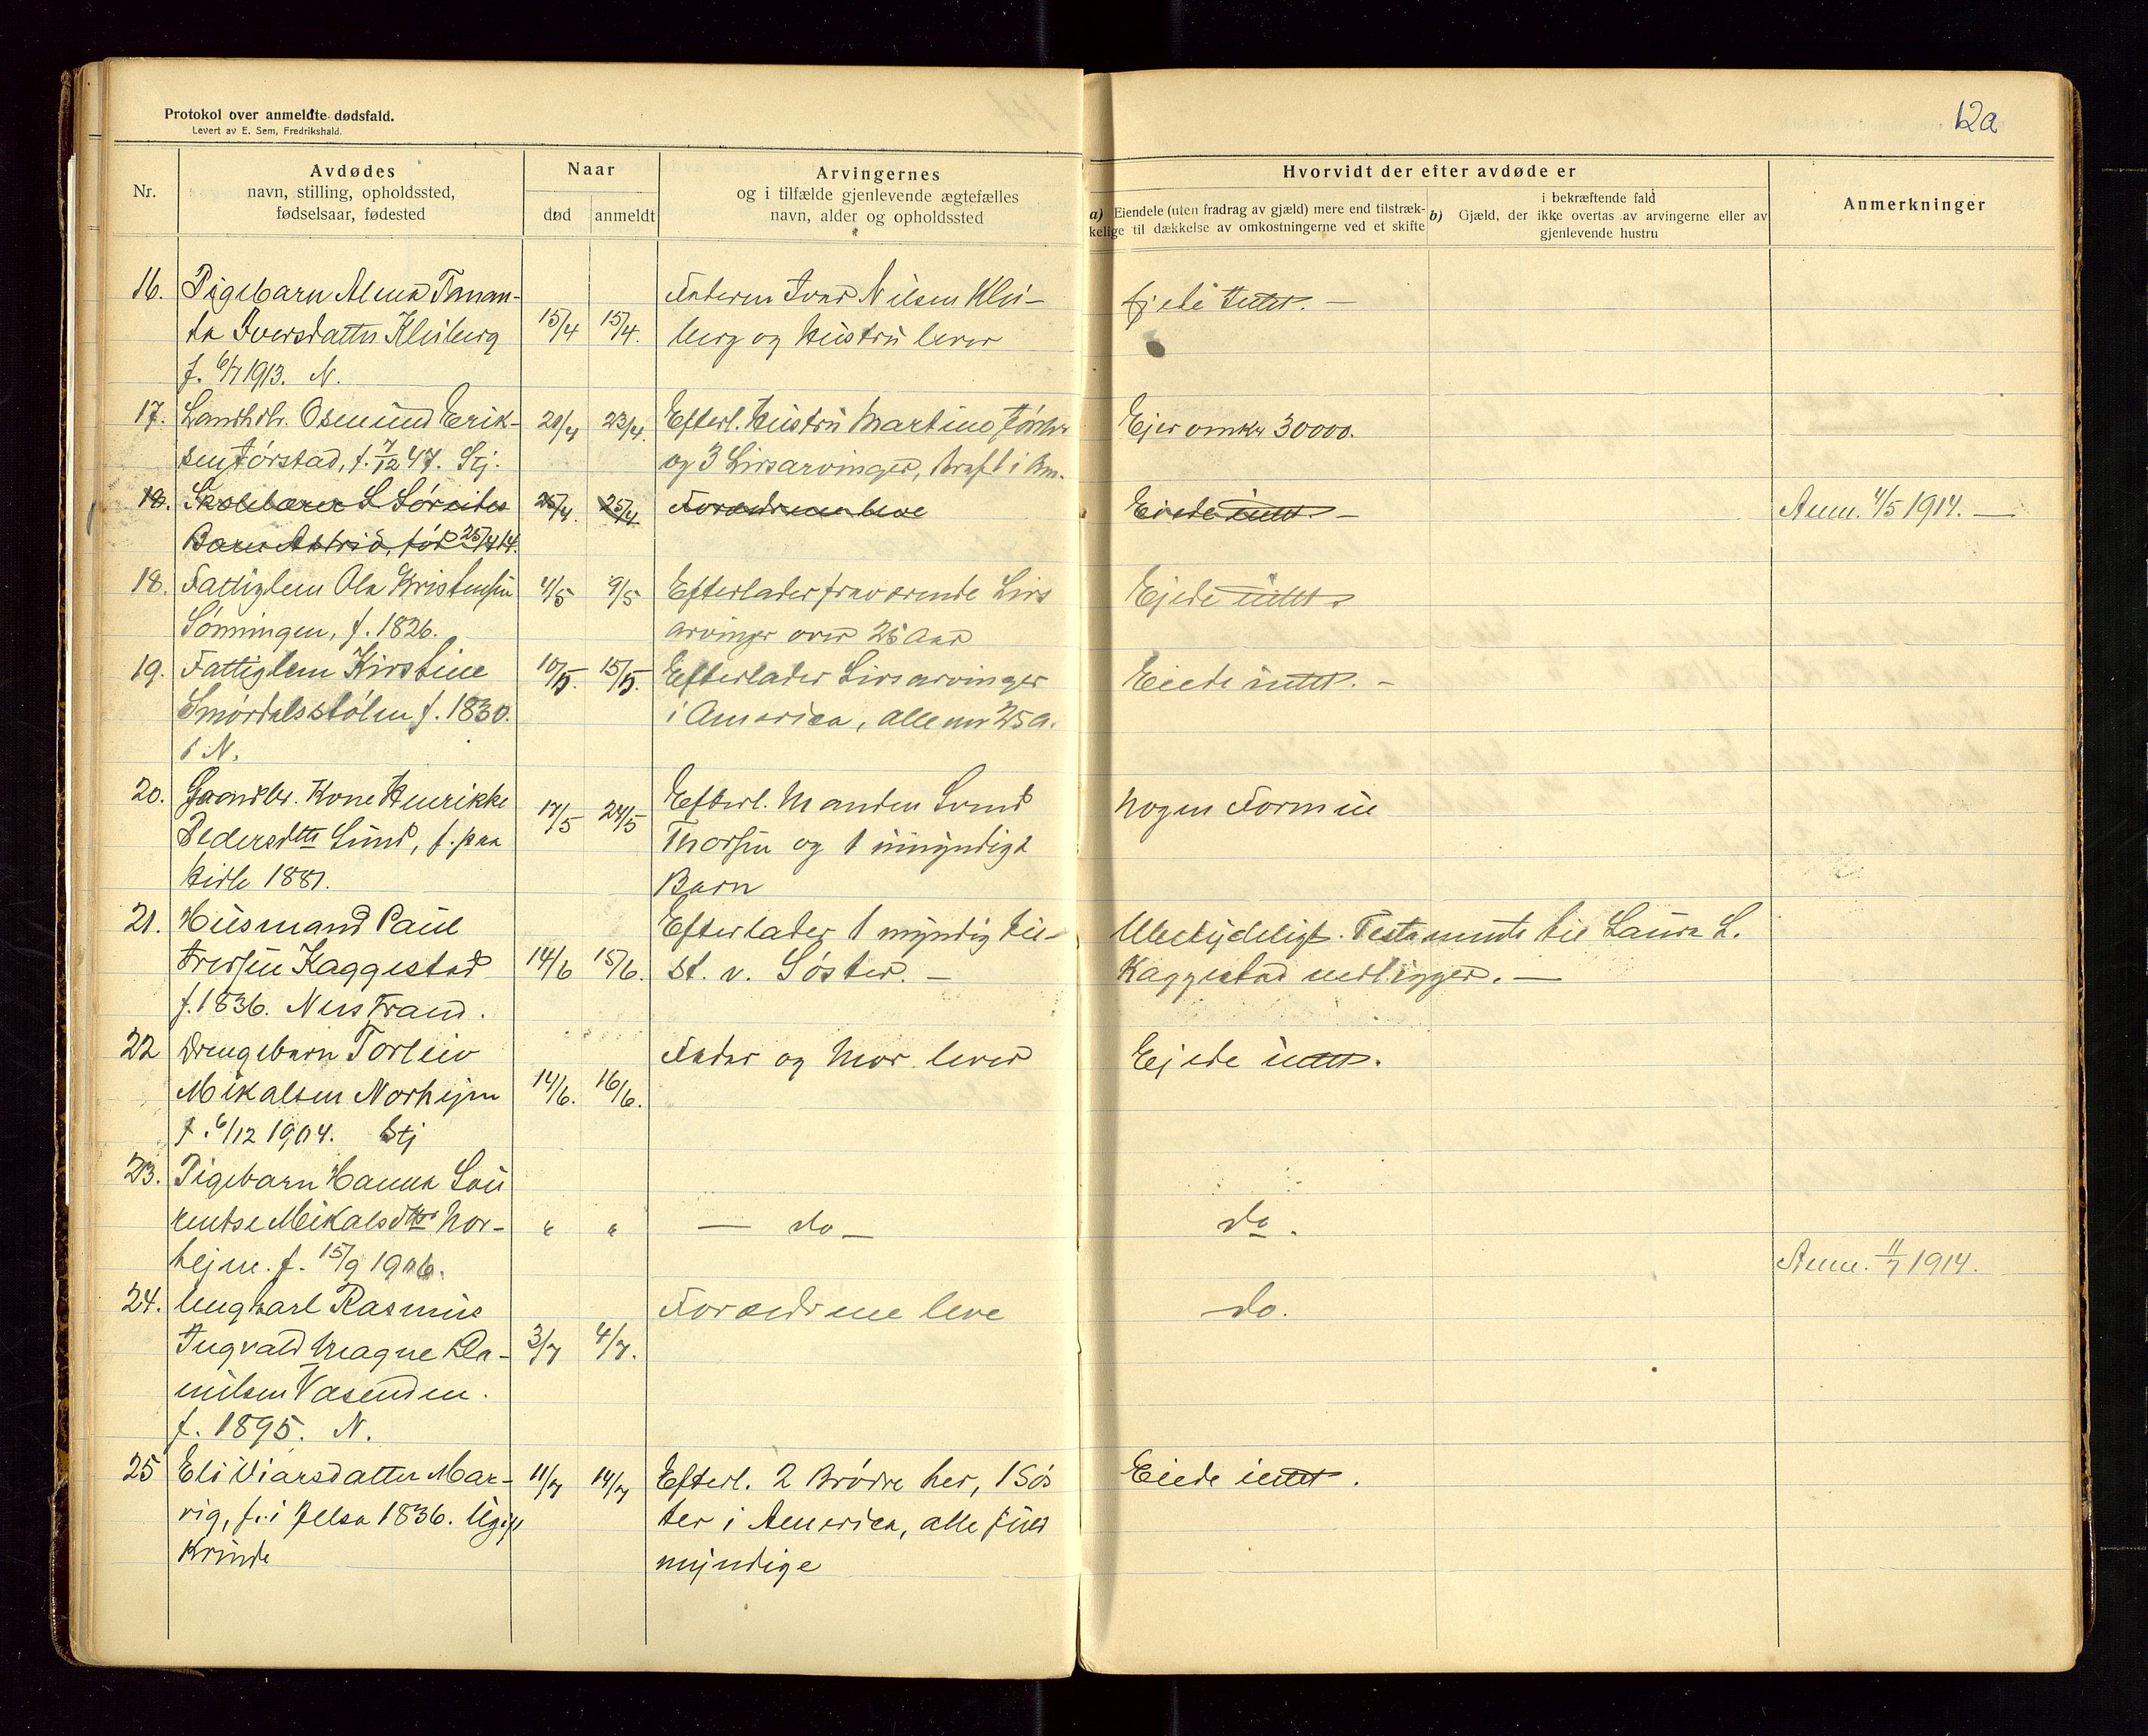 12a
Protokol over anmeldte dødsfald.
Levert av E. Sem, Fredrikshald.
Nr.
Avdødes
navn, stilling, opholdssted,
fødselsaar, fødested
Naar
død
anmeldt
Arvingernes
og i tilfælde gjenlevende ægtefælles
navn, alder og opholdssted
Hvorvidt der efter avdøde er
a) Eiendele (uten fradrag av gjæld) mere end tilstræk-
kelige til dækkelse av omkostningerne ved et skifte
i bekræftende fald
b) Gjæld, der ikke overtas av arvingerne eller av
gjenlevende hustru
Anmerkninger
16. Pigebarn Alma Tman-
da Iversdatter Kleiberg
f. 6/7 1913. N.
15/4 15/4.
Faderen Ivar Nilsen Klei-
berg og Hustru lever
Ejede Intet. —
17. Landhdlr. Osmund Erik-
sen Førstad, f. 7/12 47. Stj.
20/4 23/4.
Efterl. Hustru Martine
og 3 Livsarvinger, braft i Am.
Ejer omkr 30000.
18. Skolelærer L Søreides
Barn Astrid, fød 25/4 14.
25/4. 25/4
Forældrene leve
Eiede intet. —
Anm. 4/5 1914. —
18. Fattiglem Ola Kristensen
Sønningen, f. 1826.
4/5 9/5
Efterlader fraværende Livs
arvinger over 25 Aar
Ejede intet.
19. Fattiglem Kirstine
Smørdalsstølen f. 1830.
i N.
10/5. 15/5.
Efterlader Livsarvinger
i America, alle ovr 25 A.
Eiede intet. -
20. Gaardbr. Kone Henrikke
Pedersdtr Lund, f. paa
Hirle 1881.
17/5 24/5
Efterl. Manden Svend
Thorsen og 1 umyndigt
Barn
Nogen Formue
21. Husmand Paul
Iversen Kaggestad
f. 1836. Nerstrand.
14/6 15/6.
Efterlader 1 myndig
St. v. Søster. —
Ubetydeligt. Testamente til Laura L.
Kaggestad vedligger. —
22 Drengebarn Torleiv
Mikalsen Norhejm
f. 6/12 1904. Stj
14/6. 16/6.
Fader og Mor lever
Ejede intet.
23. Pigebarn Hanna Lou
rentse Mikalsdtr Nor-
hejm. f. 15/9 1906.
" "
— do —
do.
Anm. 11/7 1914.
24. Ungkarl Rasmus
Ingvald Magne Da-
nielsen Vasenden.
f. 1895. N.
3/7 4/7.
Forældrene leve
do.
25 Eli Viarsdatter Mar-
vig, f. i Jelsa 1836. Ugift
Kvinde
11/7 14/7
Efterl. 2 Brødre her, 1 Søs
ter i America, alle fuld
myndige
Eiede intet.